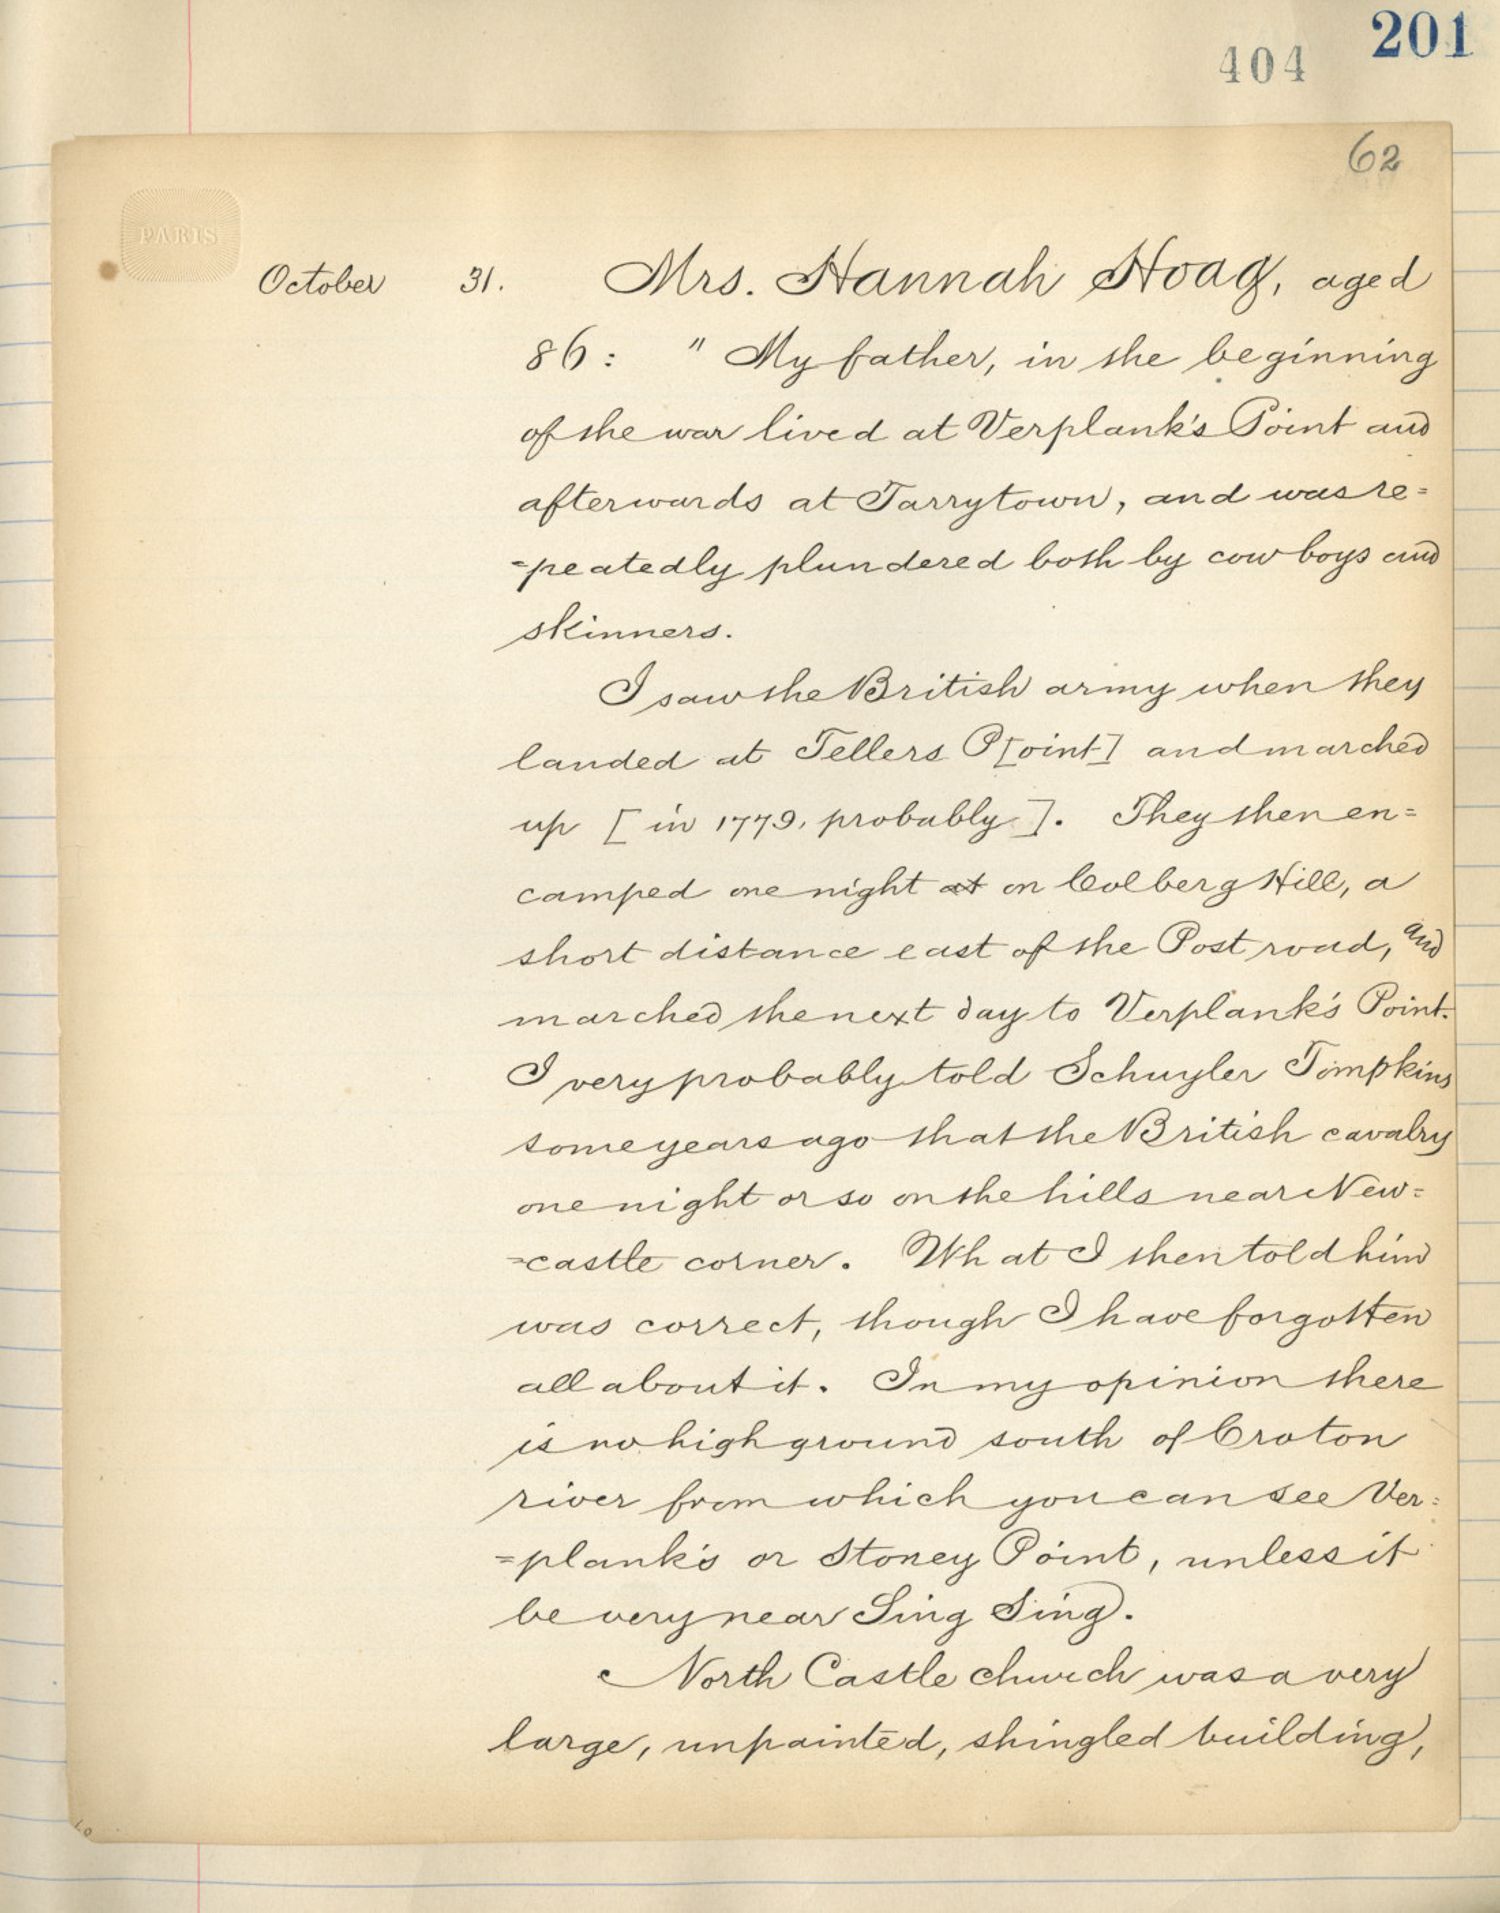 201
404
62
PARIS
October 31. Mrs. Hannah Hoag, aged
86: " My father, in the beginning
of the war lived at Verplank's Point and
afterwards at Tarrytown, and was re=
=peatedly plundered both by cow boys and
skinners.
I saw the British army when they
landed at Tellers P[oint] and marched
up [in 1779, probably]. They then en=
camped one night at on Colberg Hill, a
short distance east of the Post road, and
marched the next day to Verplank's Point.
I very probably told Schuyler Tompkins
some years ago that the British cavalry
one night or so on the hills near New=
=castle corner. What I then told him
was correct, though I have forgotten
all about it. In my opinion there
is no high ground south of Croton
river from which you can see Ver=
=plank's or Stoney Point, unless it
be very near Sing Sing.
North Castle church was a very
large, unpainted, shingled building,